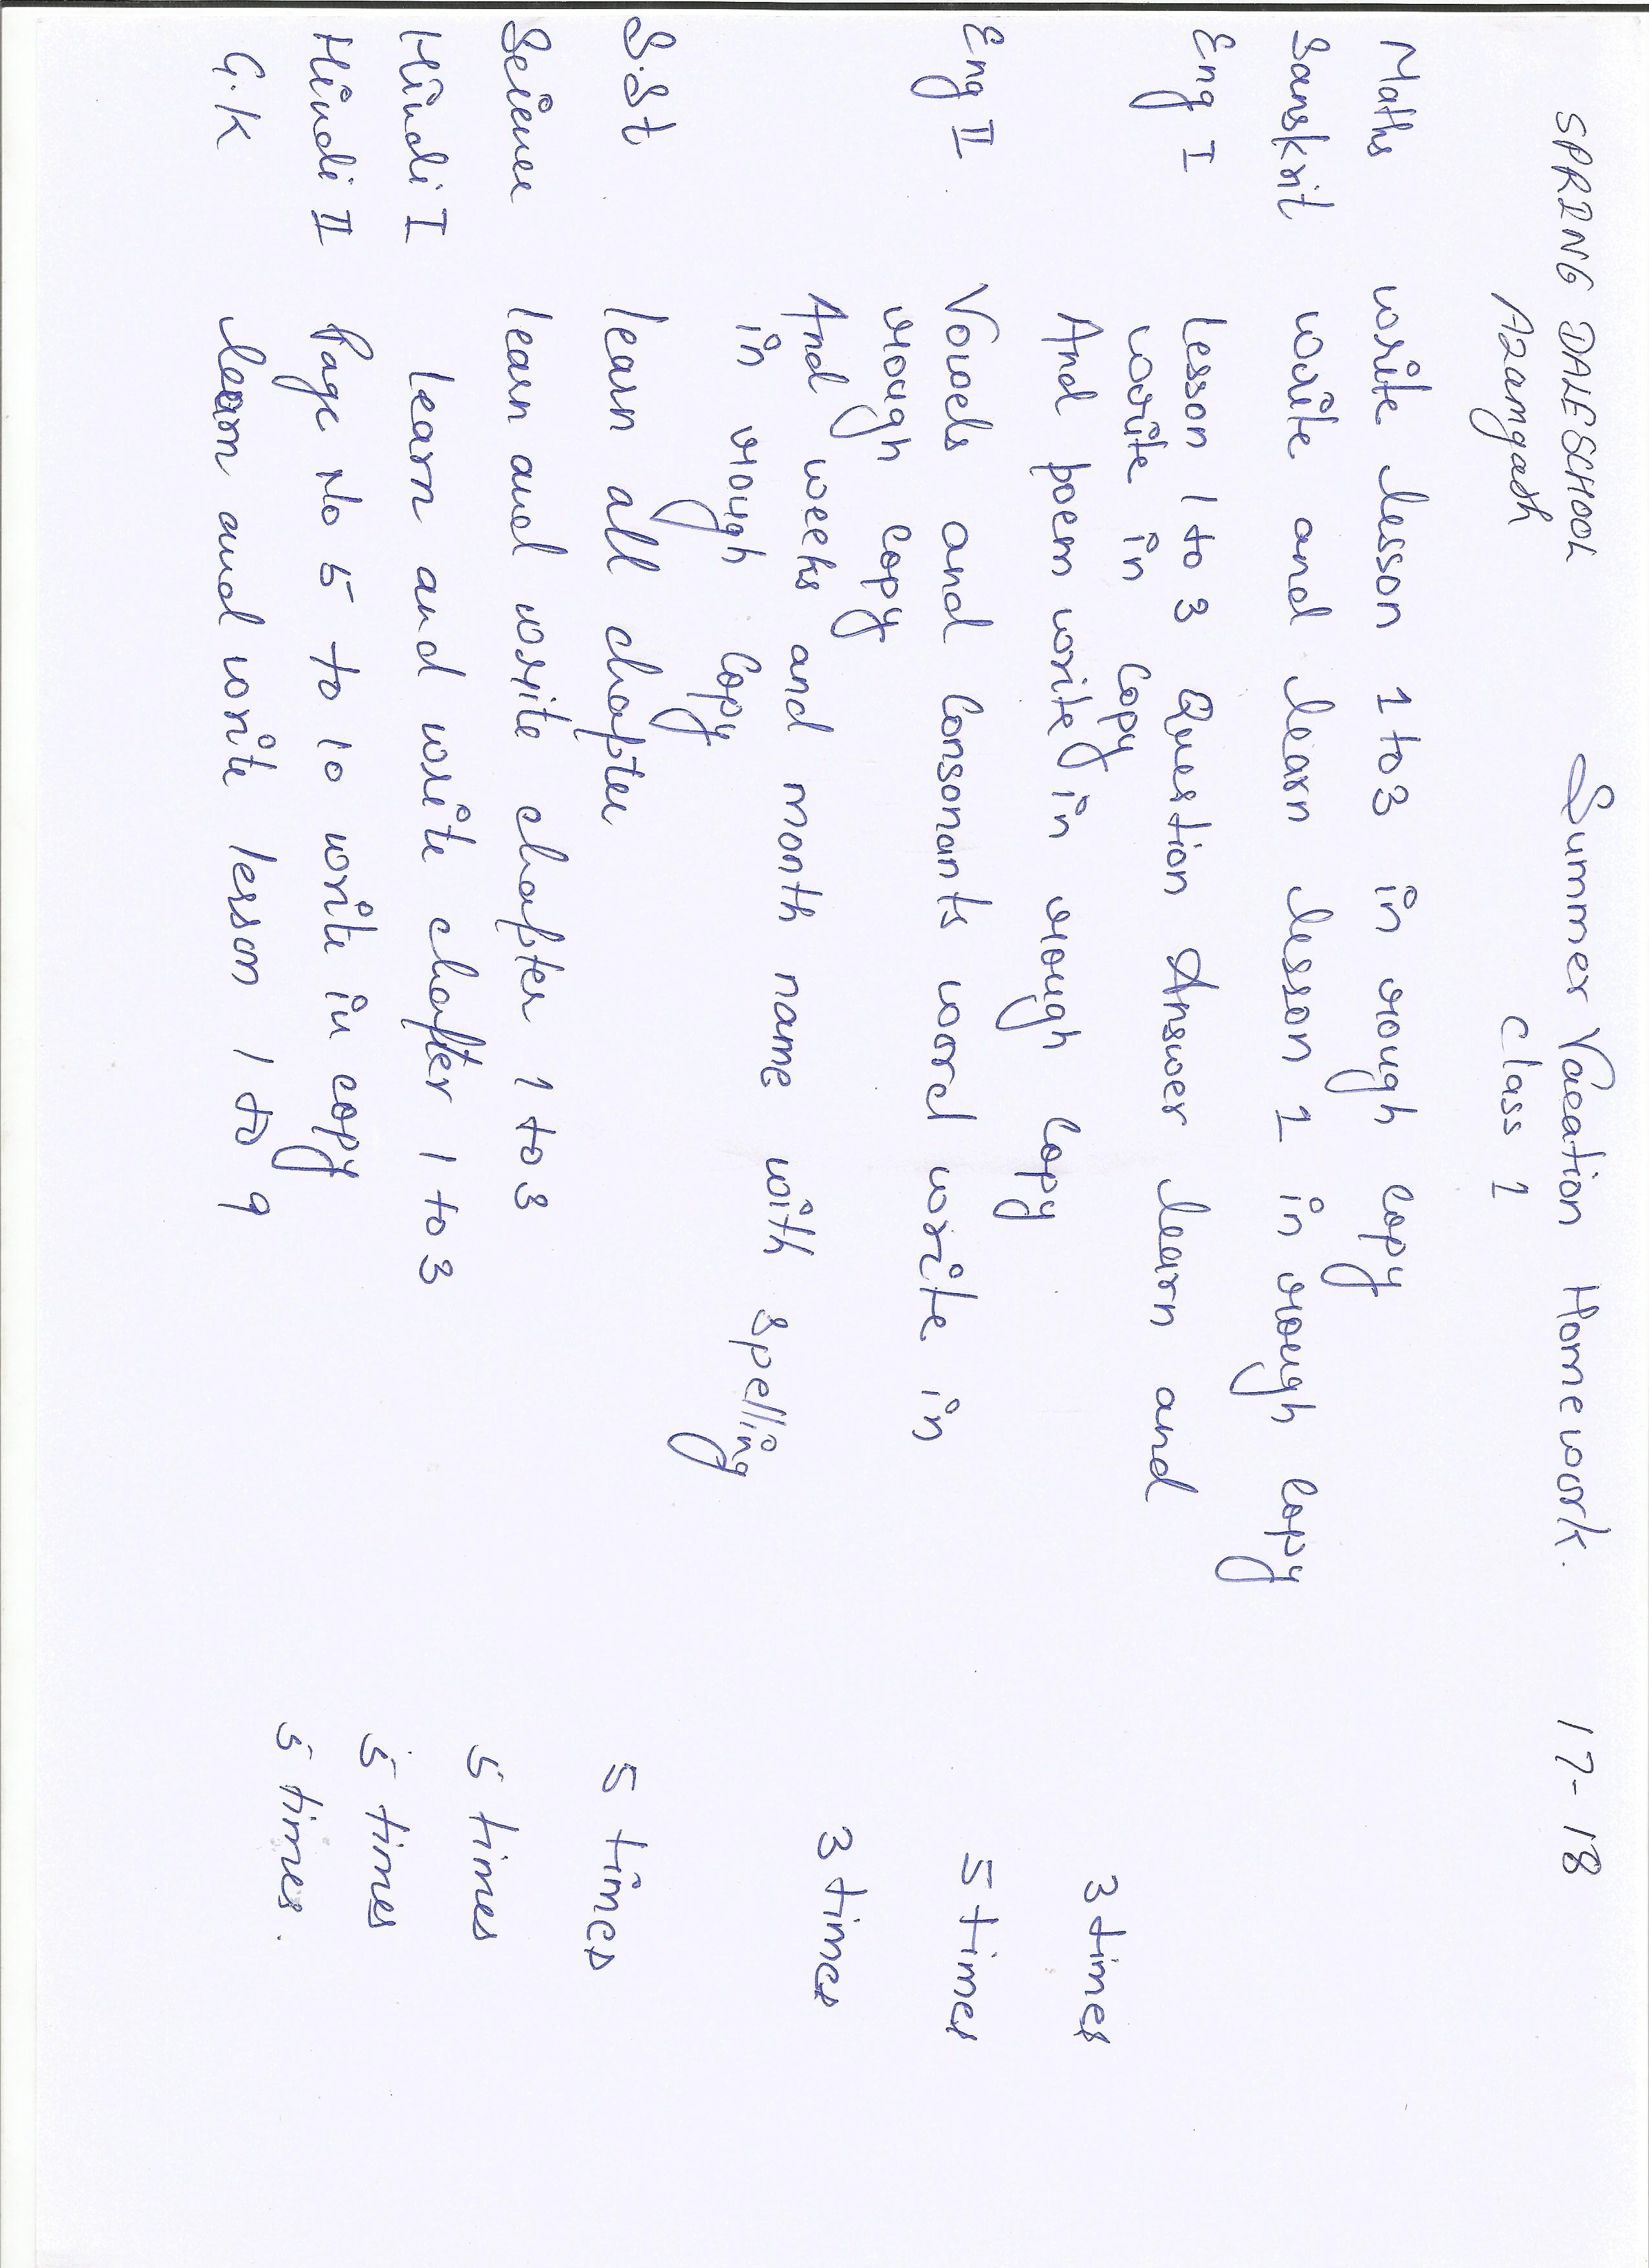 SPRING DALE SCHOOL Summer Vacation Homework. 17-18
Azamgarh Class 1
Maths write lesson 1 to 3 in rough copy
Sanskrit write and learn lesson 1 in rough copy
Eng I Lesson 1 to 3 Question Answer learn and
write in copy 3 times
And poem write in rough copy
Eng II Vowels and Consonants word write in 5 times
rough copy
And weeks and month name with spelling 3 times
in rough copy
S.St learn all chapter 5 times
Science learn and write chapter 1 to 3 5 times
Hindi I learn and write chapter 1 to 3 5 times
Hindi II Page No 5 to 10 write in copy 5 times.
G.K learn and write lesson 1 to 9